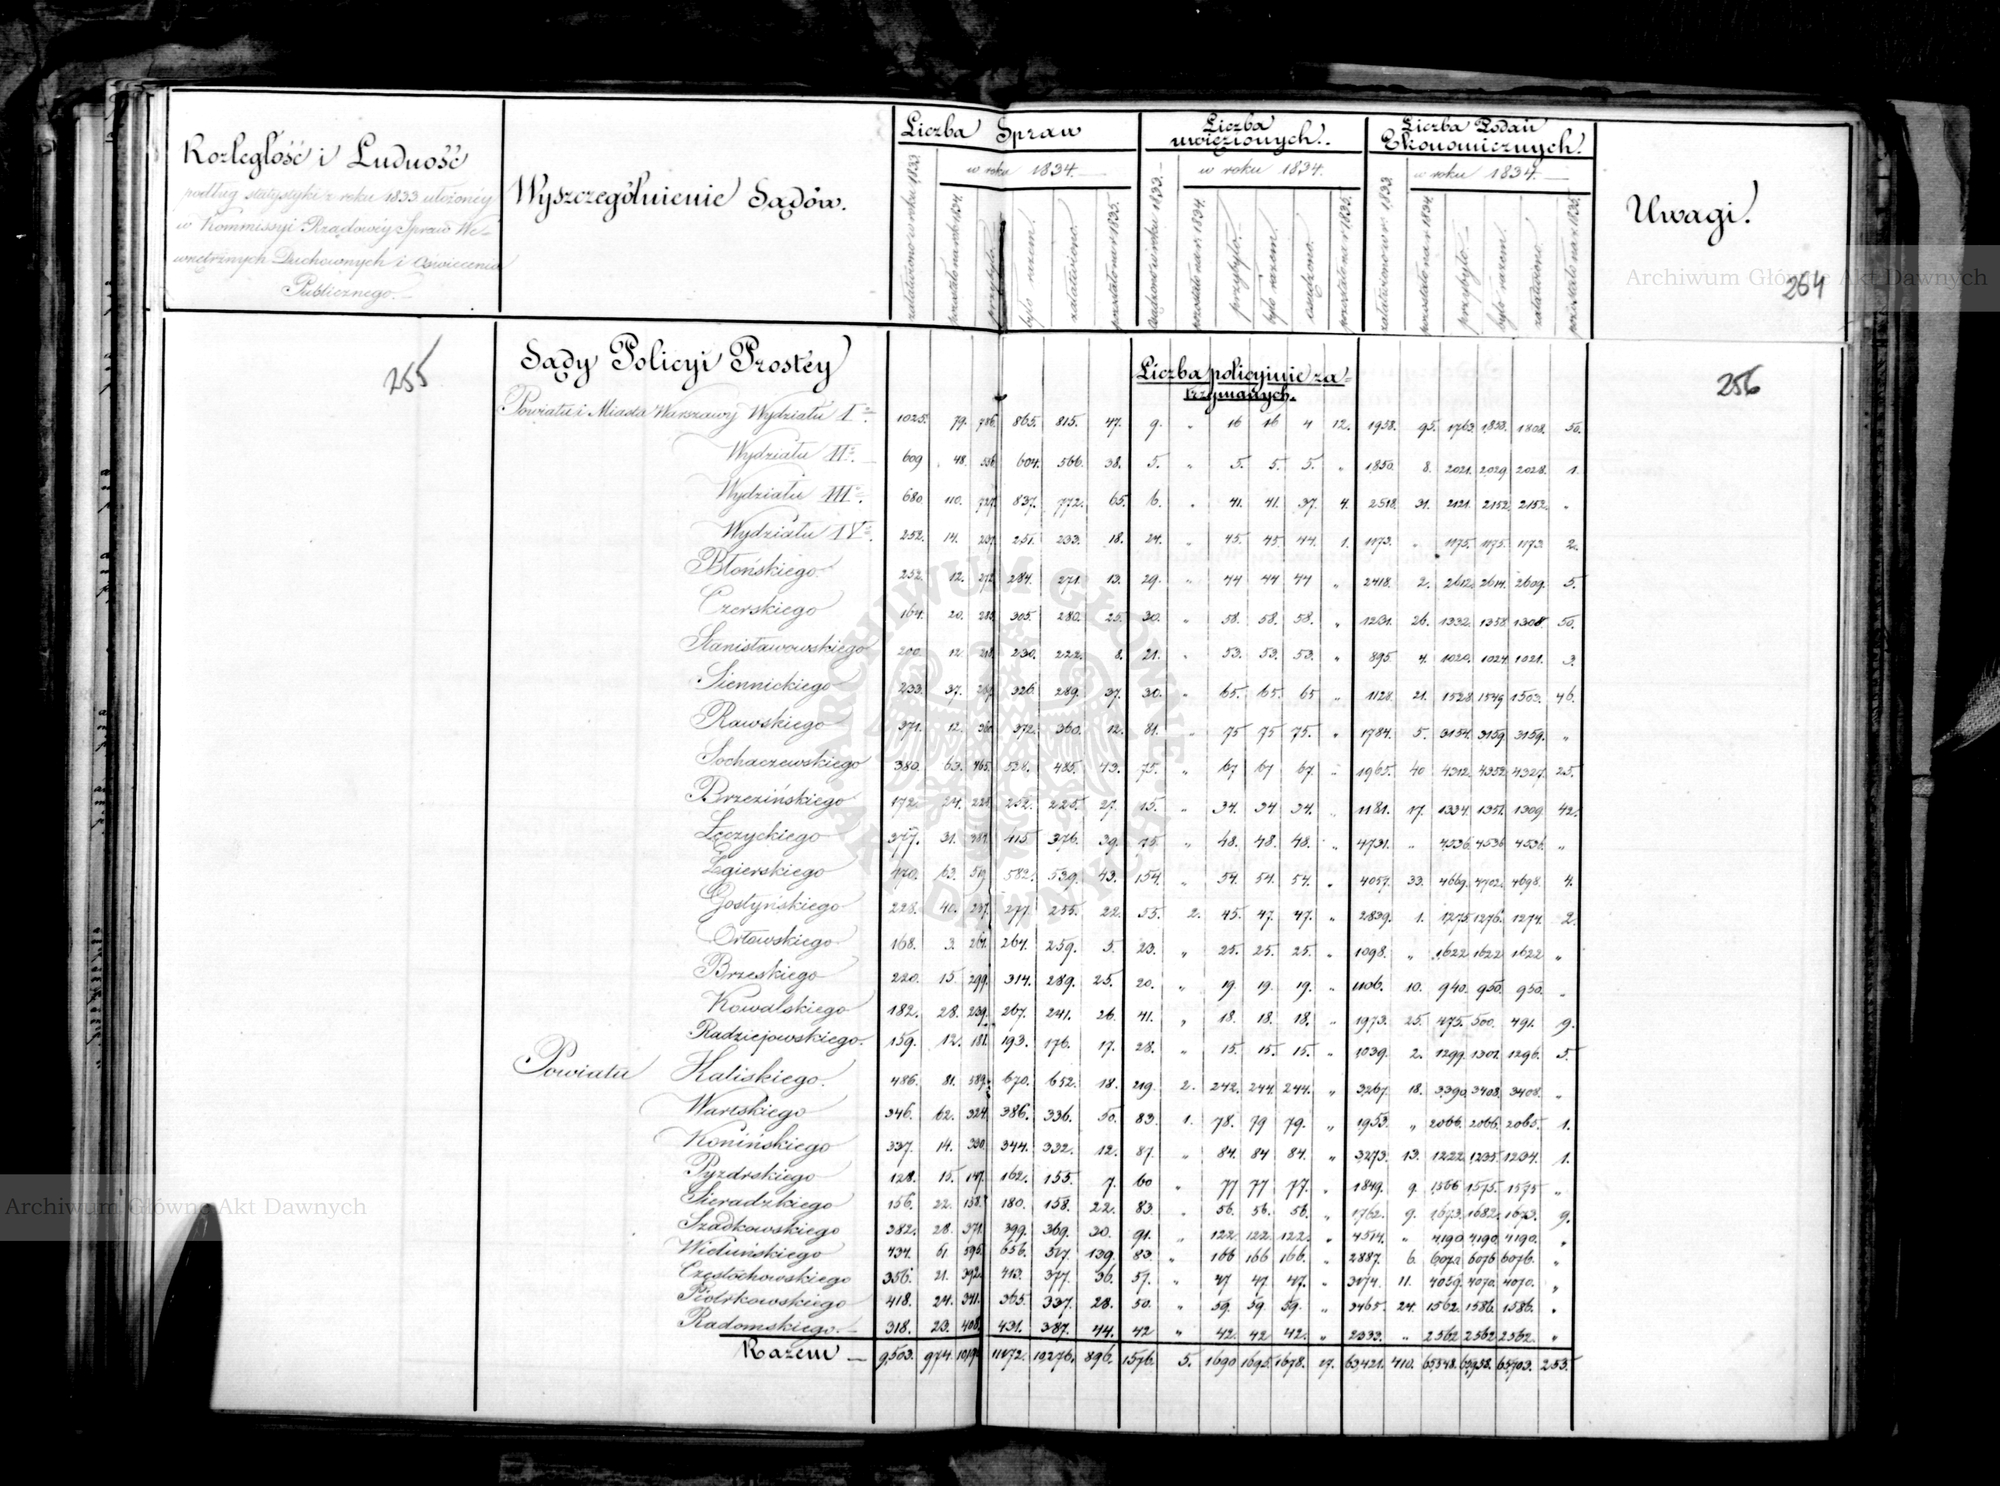 Rozległość i Ludność
podług statystyki z roku 1833 ułożonéy
w Kommissyi Rządowéy Spraw We-
wnętrznych Duchownych i Oświecenia
Publicznego.
Wyszczególnienie Sądów.
Liczba Spraw
w roku 1834.
załatwiono w roku 1833.
pozostało na rok 1834.
przybyło.
było razem.
załatwiono.
pozostało na r. 1835.
Liczba
uwięzionych.
w roku 1834.
przybyło.
było razem.
osądzono.
Liczba Podań
Ekonomicznych.
w roku 1834.
załatwiono w r. 1833
pozostało na r. 1834.
przybyło.
było razem.
załatwiono.
pozostało na r. 1835.
Uwagi.
264
255
256
Sądy Policyi Prostéy
Liczba policyinie za=
trzymanych.
Powiatu i Miasta Warszawy Wydziału I. 1025. 79. 786. 865. 815. 47. 9. " 16 16 4 12. 1938. 95. 1763. 1858. 1808. 50.
Wydziału II. 609 48. 556. 604. 566. 38. 5. " 5. 5. 5. " 1850. 8. 2021. 2029. 2028. 1.
Wydziału III. 680. 110. 727. 837. 772. 65. 6. " 41. 41. 37. 4. 2518. 31. 2121. 2152. 2152. "
Wydziału IV. 252. 14. 237. 251. 233. 18. 24. " 45. 45. 44. 1. 1173. " 1175. 1175. 1173. 2.
Błońskiego. 252. 12. 272. 284. 271. 13. 29. " 44 44 44 " 2418. 2. 2612. 2614. 2609. 5.
Czerskiego 164. 20. 285. 305. 280. 25. 30. " 58. 58. 58. " 1231. 26. 1332. 1358. 1308. 50.
Stanisławowskiego 200. 12. 218. 230. 222. 8. 21. " 53. 53. 53. " 895. 4. 1020. 1024. 1021. 3.
Siennickiego 233. 37. 289. 326. 289. 37. 30. " 65. 65. 65 " 1128. 21. 1528. 1549 1503. 46.
Rawskiego 371. 12. 360. 372. 360. 12. 81. " 75 75 75. " 1784. 5. 3154. 3159. 3159. "
Sochaczewskiego 380. 63. 465. 528. 485. 43. 75. " 67 67 67. " 1965. 40 4312. 4352. 4327. 25.
Brzezińskiego 172. 24. 228. 252. 225. 27. 15. " 34. 34 34. " 1181. 17. 1334. 1351. 1309. 42.
Łęczyckiego 377. 31. 384. 415 376. 39. 75. " 48. 48. 48. " 4731. " 4536. 4536 4536. "
Zgierskiego 470. 63. 519. 582. 539. 43. 154. " 54. 54. 54. " 4057. 33. 4669. 4702. 4698. 4.
Gostyńskiego 228. 40. 237. 277. 255. 22. 55. 2. 45. 47. 47. " 2839. 1. 1275 1276. 1274. 2.
Orłowskiego 168. 3. 261. 264. 259. 5. 23. " 25. 25. 25. " 1098. " 1622 1622 1622 "
Brzeskiego 220. 15. 299. 314. 289. 25. 20. " 19. 19. 19. " 1106. 10. 940. 950. 950. "
Kowalskiego 182. 28. 239. 267. 241. 26. 41. " 18. 18. 18. " 1973. 25. 475. 500. 491. 9.
Radziejowskiego. 159. 12. 181. 193. 176. 17. 28. " 15. 15. 15. " 1039. 2. 1299. 1301. 1296. 5.
Powiatu Kaliskiego. 486. 81. 589. 670. 652. 18. 219. 2. 242. 244. 244. " 3267. 18. 3390. 3408. 3408. "
Wartskiego 346. 62. 324. 386. 336. 50. 83. 1. 78. 79 79. " 1953. " 2066. 2066. 2065. 1.
Konińskiego 337. 14. 330. 344. 332. 12. 87. " 84. 84 84. " 3273. 13. 1222. 1235. 1234. 1.
Pyzdrskiego 128. 15. 147. 162. 155. 7. 60 " 77 77 77. " 1849. 9. 1566 1575. 1575 "
Sieradzkiego 156. 22. 158. 180. 158. 22. 83. " 56. 56. 56. " 1762. 9. 1673. 1682. 1673. 9.
Szadkowskiego 382. 28. 371. 399. 369. 30. 91. " 122. 122. 122. " 4514. " 4190. 4190. 4190. "
Wieluńskiego 434. 61. 595. 656. 517. 139. 83. " 166 166 166. " 2887. 6. 6070. 6076 6076. "
Częstochowskiego 356. 21. 392. 413. 377. 36. 57. " 47. 47. 47. " 3174. 11. 4059. 4070. 4070. "
Piotrkowskiego 418. 24. 341. 365. 337. 28. 50. " 59. 59. 59. " 3465. 24. 1562. 1586. 1586. "
Radomskiego. 318. 23. 408. 431. 387. 44. 42 " 42. 42 42. " 2333. " 2562 2562 2562. "
Razem 9,503. 974. 11172. 10,276. 896. 1576. 5. 1690 1695. 1678. 17. 63,421. 410. 253.
Archiwum Główne Akt Dawnych
Archiwum Główne Akt Dawnych
ARCHIWUM GŁÓWNE AKT DAWNYCH